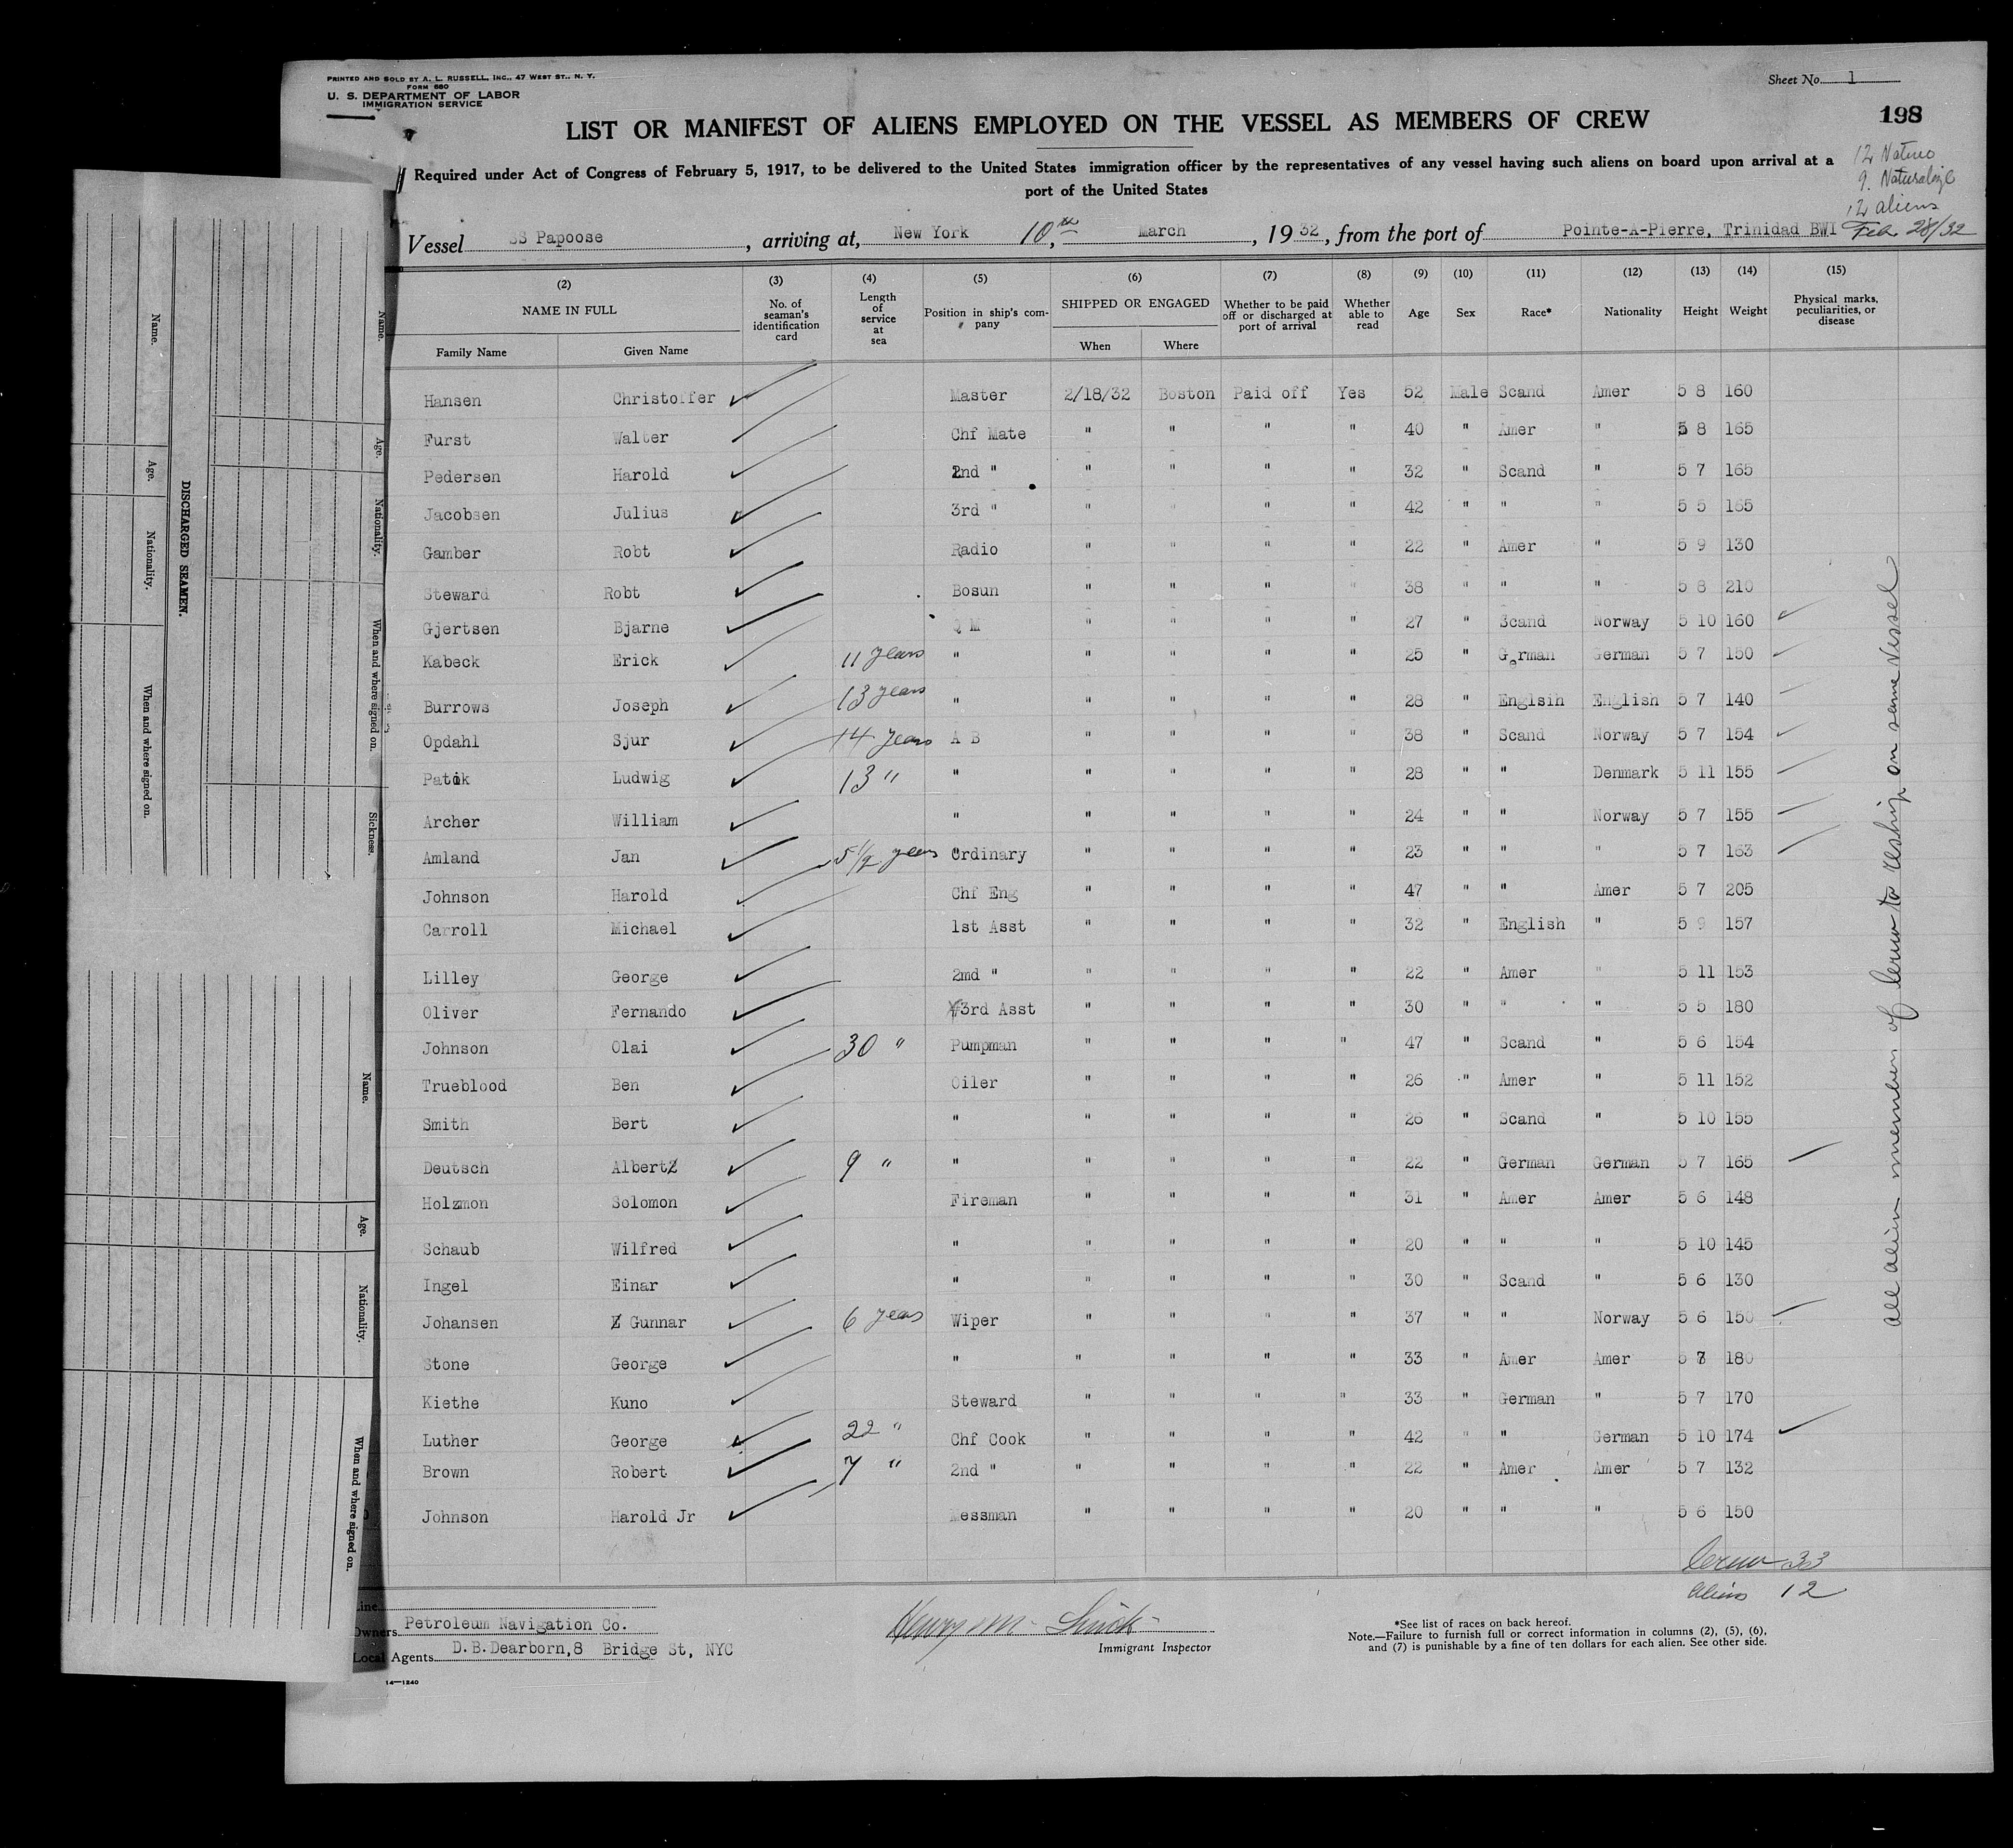 PRINTED AND SOLD BY A. L. RUSSELL, INC., 47 WEST ST., N. Y.
FORM 680
U. S. DEPARTMENT OF LABOR
IMMIGRATION SERVICE
Sheet No. 1
198
LIST OR MANIFEST OF ALIENS EMPLOYED ON THE VESSEL AS MEMBERS OF CREW
Required under Act of Congress of February 5, 1917, to be delivered to the United States immigration officer by the representatives of any vessel having such aliens on board upon arrival at a
port of the United States
12 Native
9. Naturalize
12 aliens
Vessel SS Papoose, arriving at, New York 10th, March, 1932, from the port of Pointe-A-Pierre, Trinidad BWI Feb 28/32
(2) (3) (4) (5) (6) (7) (8) (9) (10) (11) (12) (13) (14) (15)
NAME IN FULL No. of seaman's identification card Length of service at sea Position in ship's company SHIPPED OR ENGAGED Whether to be paid off or discharged at port of arrival Whether able to read Age Sex Race* Nationality Height Weight Physical marks, peculiarities, or disease
Family Name Given Name When Where
Hansen Christoffer Master 2/18/32 Boston Paid off Yes 52 Male Scand Amer 5 8 160
Furst Walter Chf Mate " " " " 40 " Amer " 5 8 165
Pedersen Harold 2nd " " " " " 32 " Scand " 5 7 165
Jacobsen Julius 3rd " " " " " 42 " " " 5 5 165
Gamber Robt Radio " " " " 22 " Amer " 5 9 130
Steward Robt Bosun " " " " 38 " " " 5 8 210
Gjertsen Bjarne Q M " " " " 27 " Scand Norway 5 10 160
Kabeck Erick 11 years " " " " " 25 " German German 5 7 150
Burrows Joseph 13 years " " " " " 28 " Englsih English 5 7 140
Opdahl Sjur 14 years A B " " " " 38 " Scand Norway 5 7 154
Patik Ludwig 13 " " " " " " 28 " " Denmark 5 11 155
Archer William " " " " " 24 " " Norway 5 7 155
Amland Jan 5 1/2 years Ordinary " " " " 23 " " " 5 7 163
Johnson Harold Chf Eng " " " " 47 " " Amer 5 7 205
Carroll Michael 1st Asst " " " " 32 " English " 5 9 157
Lilley George 2md " " " " " 22 " Amer " 5 11 153
Oliver Fernando 3rd Asst " " " " 30 " " " 5 5 180
Johnson Olai 30 " Pumpman " " " " 47 " Scand " 5 6 154
Trueblood Ben Oiler " " " " 26 " Amer " 5 11 152
Smith Bert " " " " " 26 " Scand " 5 10 155
Deutsch Albert 9 " " " " " " 22 " German German 5 7 165
Holzmon Solomon Fireman " " " " 31 " Amer Amer 5 6 148
Schaub Wilfred " " " " " 20 " " " 5 10 145
Ingel Einar " " " " " 30 " Scand " 5 6 130
Johansen Gunnar 6 years Wiper " " " " 37 " " Norway 5 6 150
Stone George " " " " " 33 " Amer Amer 5 180
Kiethe Kuno Steward " " " " 33 " German " 5 7 170
Luther George 22 " Chf Cook " " " " 42 " " German 5 10 174
Brown Robert 7 " 2nd " " " " " 22 " Amer Amer 5 7 132
Johnson Harold Jr Messman " " " " 20 " " " 5 6 150
all alien members of crew to reship on same vessel
Crew 33
aliens 12
Line
Owners Petroleum Navigation Co.
Local Agents D.B.Dearborn,8 Bridge St, NYC
Immigrant Inspector
*See list of races on back hereof.
Note.—Failure to furnish full or correct information in columns (2), (5), (6),
and (7) is punishable by a fine of ten dollars for each alien. See other side.
14—1240
DISCHARGED SEAMEN.
Name. Age. Nationality. When and where signed on.
Name. Age. Nationality. When and where signed on. Sickness.
Name. Age. Nationality. When and where signed on.